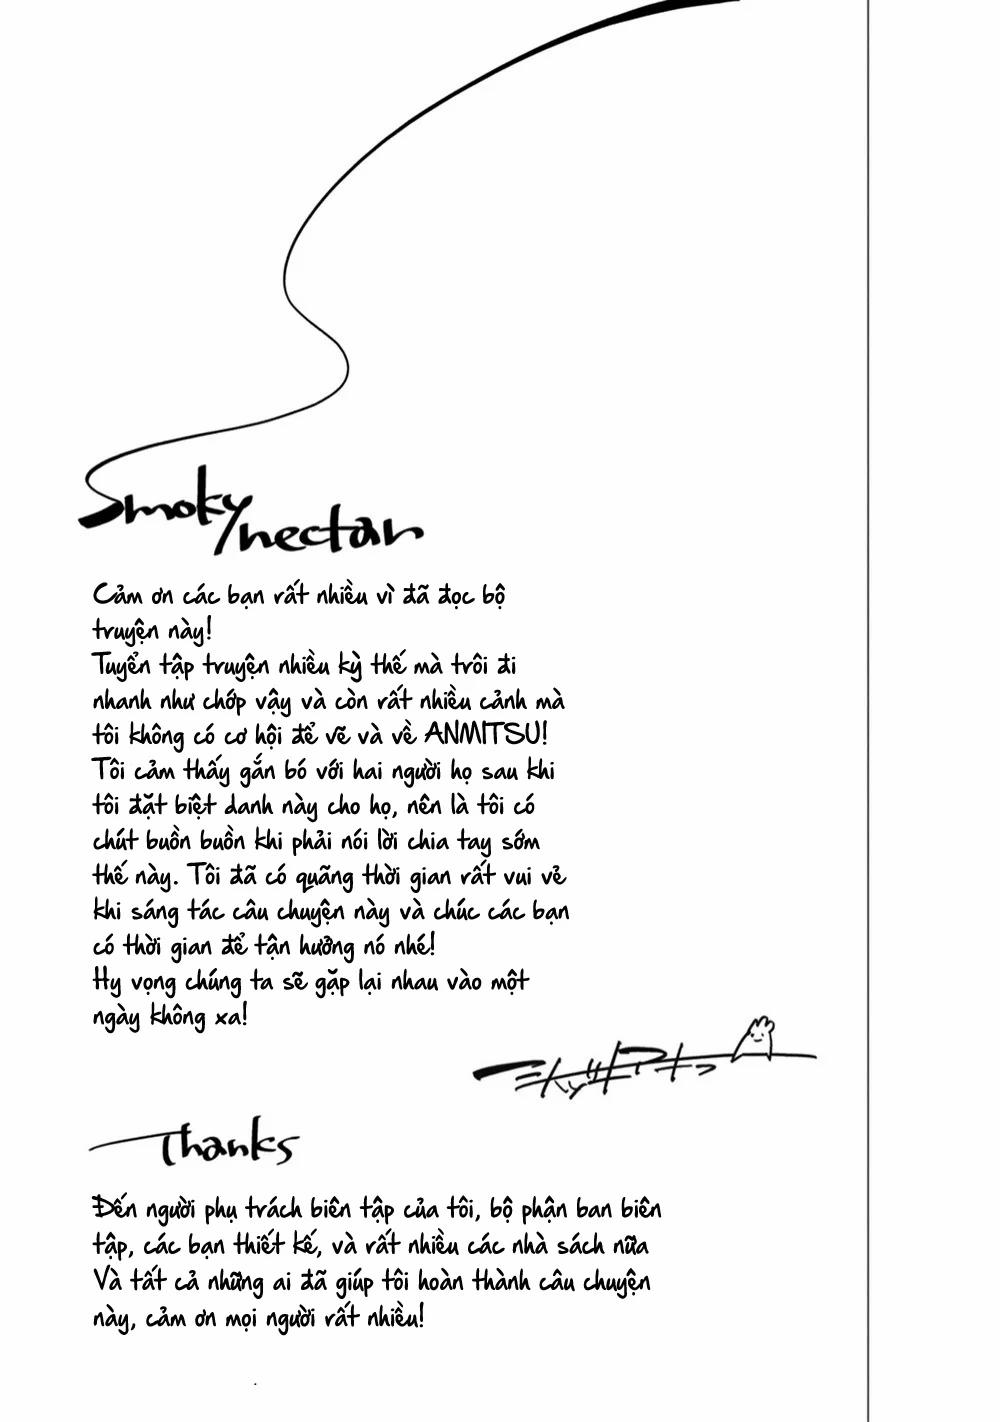 Smoky
nectar
Cảm ơn các bạn rất nhiều vì đã đọc bộ
truyện này!
Tuyển tập truyện nhiều kỳ thế mà trôi đi
nhanh như chớp vậy và còn rất nhiều cảnh mà
tôi không có cơ hội để vẽ và về ANMITSU!
Tôi cảm thấy gắn bó với hai người họ sau khi
tôi đặt biệt danh này cho họ, nên là tôi có
chút buồn buồn khi phải nói lời chia tay sớm
thế này. Tôi đã có quãng thời gian rất vui vẻ
khi sáng tác câu chuyện này và chúc các bạn
có thời gian để tận hưởng nó nhé!
Hy vọng chúng ta sẽ gặp lại nhau vào một
ngày không xa!
Thanks
Đến người phụ trách biên tập của tôi, bộ phận ban biên
tập, các bạn thiết kế, và rất nhiều các nhà sách nữa
Và tất cả những ai đã giúp tôi hoàn thành câu chuyện
này, cảm ơn mọi người rất nhiều!